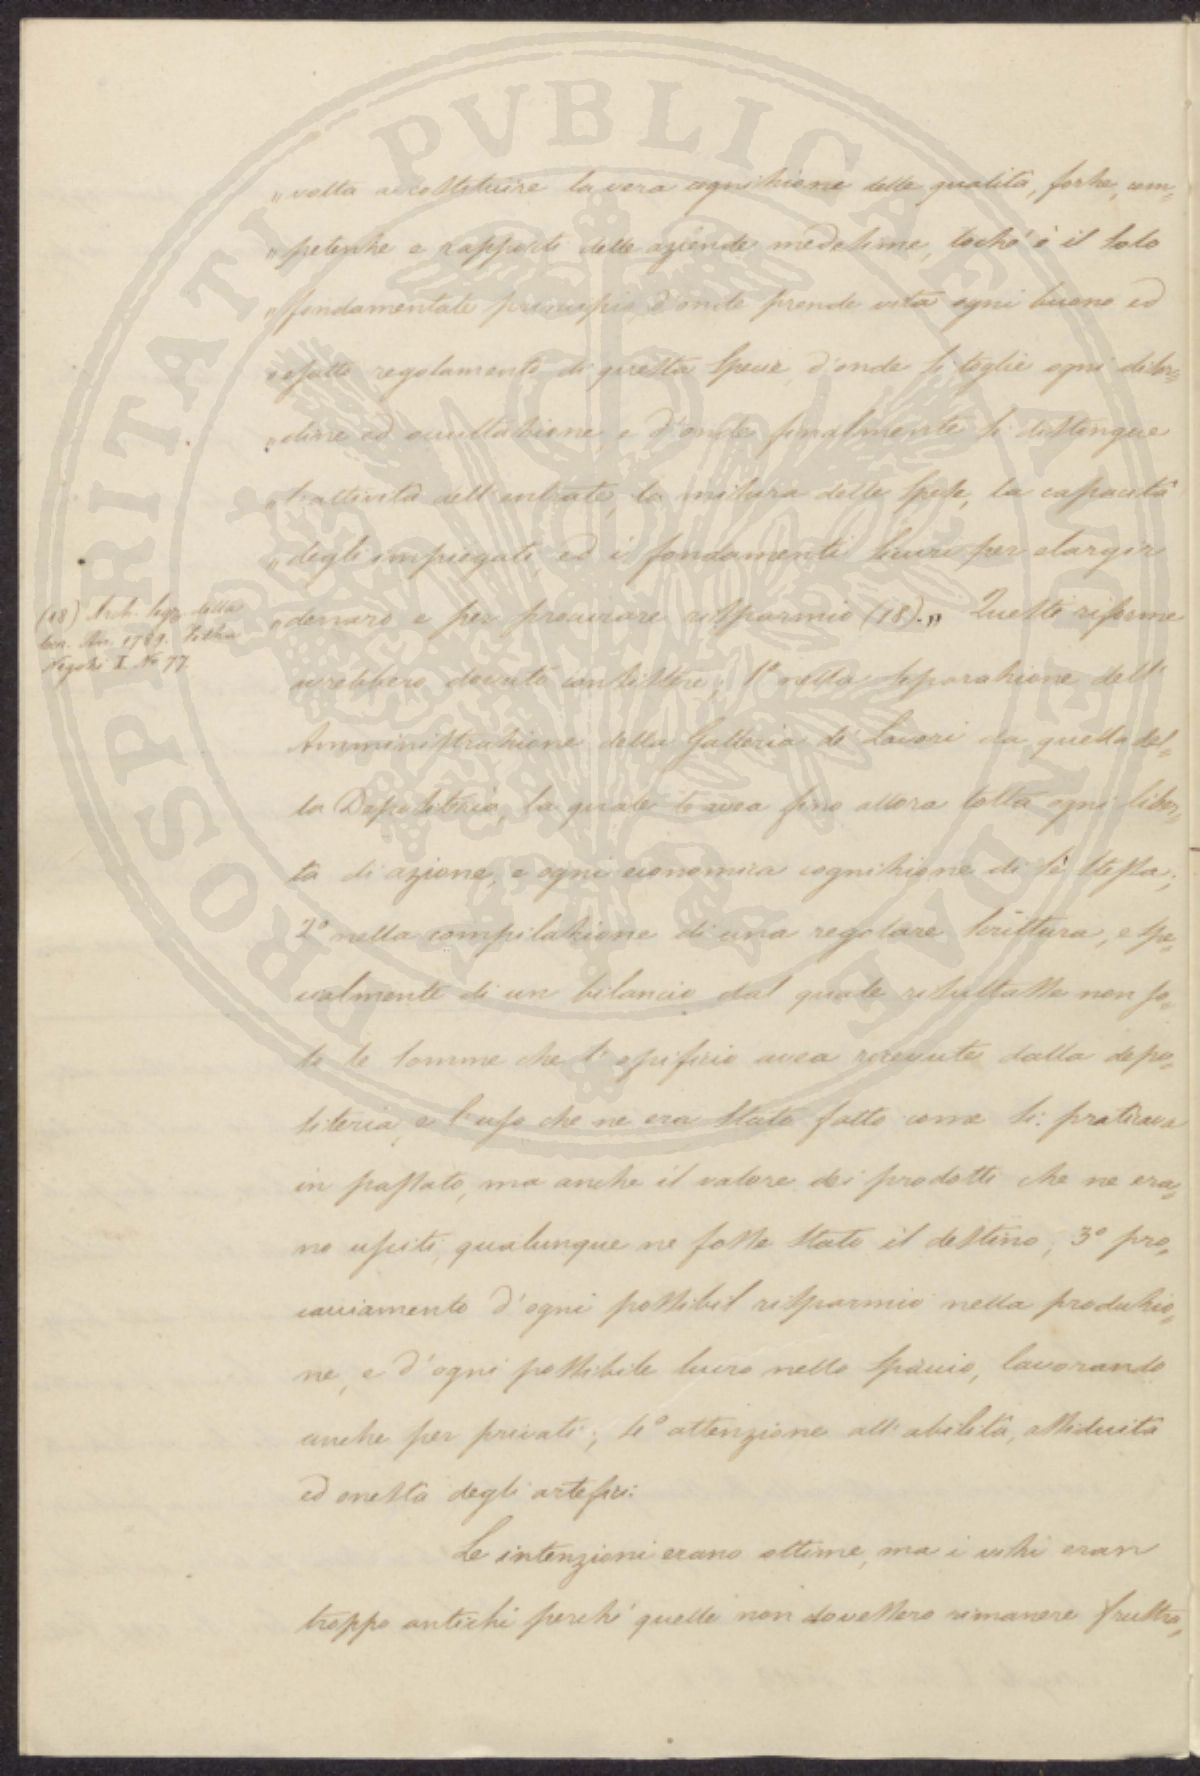 PROSPERITATI PVBLICAE AVGENDAE
„volta a costituire la vera cognizione delle qualità, forze, com=
„petenze e rapporti delle aziende medesime, lochè è il solo
„fondamentale principio, d'onde prende vita ogni buono ed
„esatto regolamento di questa specie, d'onde si toglie ogni disor=
„dine ed occultazione, e d'onde finalmente si distingue
„l'attività dell'entrate, la misura delle spese, la capacità
„degli impiegati, ed i fondamenti sicuri per elargir
„denaro e per procurare risparmio (18).„ Queste riforme
(18) Arch. Segr. della
Gen. An. 1789. Filza
Negozi I. No 77.
avrebbero dovuto consistere; 1º nella separazione dell'
Amministrazione della Galleria de' Lavori da quella del=
la Depositeria, la quale le avea fino allora tolta ogni liber=
tà di azione, e ogni economica cognizione di sè stessa;
2º nella compilazione di una regolare scrittura, e spe=
cialmente di un bilancio dal quale risultasse non so=
lo le somme che l'opificio avea ricevute dalla depo=
siteria, e l'uso che ne era stato fatto come si praticava
in passato, ma anche il valore dei prodotti che ne era=
no usciti, qualunque ne fosse stato il destino; 3º pro=
cacciamento d'ogni possibil risparmio nella produzio=
ne, e d'ogni possibile lucro nello spaccio, lavorando
anche per privati; 4º attenzione all'abilità, assiduità
ed onestà degli artefici.
Le intenzioni erano ottime, ma i vizi eran
troppo antichi perchè quelle non dovessero rimanere frustra=